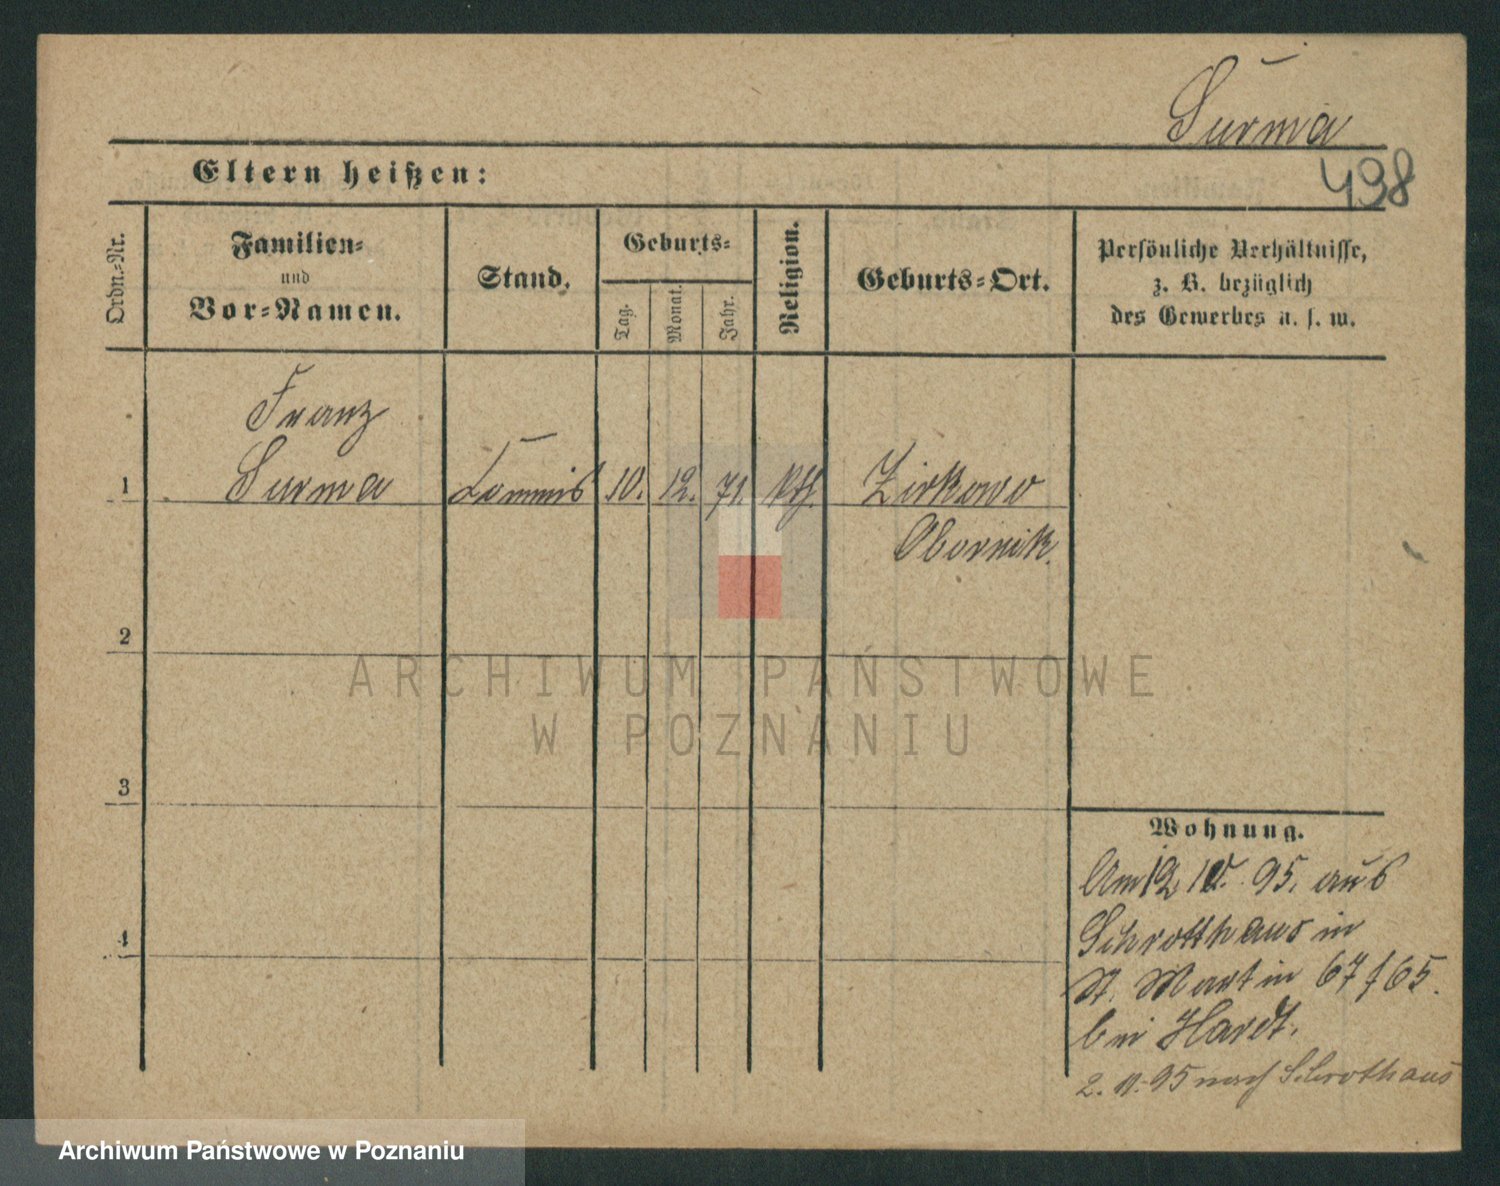 Surma
498
Eltern heißen:
Ordn.-Nr.
Familien-
und
Vor-Namen.
Stand.
Geburts-
Tag.
Monat.
Jahr.
Religion.
Geburts-Ort.
Persönliche Verhältnisse,
z. B. bezüglich
des Gewerbes u. s. w.
Franz
1 Surma Commis 10. 12. 71. kth. Zirkowo
Obornik.
2
3
4
Wohnung.
Am 12 10. 95. aus
Schrotthaus in
St. Martin 67/65.
bei Hardt.
2. 11. 95 nach Schrothaus
ARCHIWUM PAŃSTWOWE
W POZNANIU
Archiwum Państwowe w Poznaniu